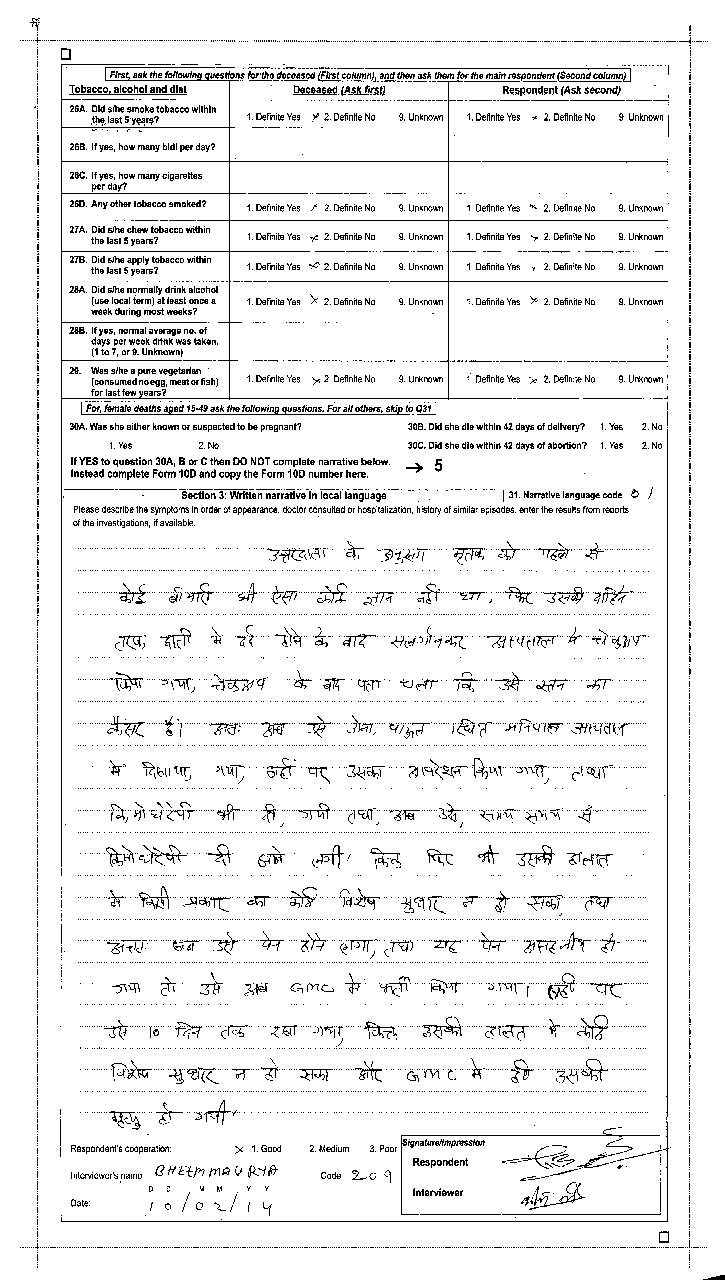 First, ask the following questions for the deceased (First column), and then ask them for the main respondent (Second column)
Tobacco, alcohol and diet Deceased (Ask first) Respondent (Ask second)
26A. Did s/he smoke tobacco within the last 5 years? 1. Definite Yes × 2. Definite No 9. Unknown 1. Definite Yes × 2. Definite No 9. Unknown
26B. If yes, how many bidi per day?
26C. If yes, how many cigarettes per day?
26D. Any other tobacco smoked? 1. Definite Yes × 2. Definite No 9. Unknown 1. Definite Yes × 2. Definite No 9. Unknown
27A. Did s/he chew tobacco within the last 5 years? 1. Definite Yes × 2. Definite No 9. Unknown 1. Definite Yes × 2. Definite No 9. Unknown
27B. Did s/he apply tobacco within the last 5 years? 1. Definite Yes × 2. Definite No 9. Unknown 1. Definite Yes × 2. Definite No 9. Unknown
28A. Did s/he normally drink alcohol (use local term) at least once a week during most weeks? 1. Definite Yes × 2. Definite No 9. Unknown 1. Definite Yes × 2. Definite No 9. Unknown
28B. If yes, normal average no. of days per week drink was taken. (1 to 7, or 9. Unknown)
29. Was s/he a pure vegetarian (consumed no egg, meat or fish) for last few years? 1. Definite Yes × 2 Definite No 9. Unknown 1 Definite Yes × 2. Definite No 9. Unknown
For, female deaths aged 15-49 ask the following questions. For all others, skip to Q31
30A. Was she either known or suspected to be pregnant? 30B. Did she die within 42 days of delivery? 1. Yes 2. No
1. Yes 2. No 30C. Did she die within 42 days of abortion? 1. Yes 2. No
If YES to question 30A, B or C then DO NOT complete narrative below. → 5
Instead complete Form 10D and copy the Form 10D number here.
Section 3: Written narrative in local language 31. Narrative language code 01
Please describe the symptoms in order of appearance, doctor consulted or hospitalization, history of similar episodes, enter the results from reports
of the investigations, if available.
उत्तरदाता के अनुसार मृतक को पहले से
कोई बीमारी थी ऐसा कोई ज्ञान नहीं था, फिर उसकी दाहिने
तरफ छाती मे दर्द होने के बाद अस्पताल मे चेकअप
किया गया, चेकअप के बाद पता चला कि उसे स्तन का
कैंसर है। अतः अब उसे गोवा, स्थित मनिपाल अस्पताल
मे दिखाया, गया, जहाँ पर उसका आपरेशन किया गया, तथा
किमोथेरेपी भी दी, गयी तथा, अब उसे, समय समय से
किमोथेरेपी दी जाने लगी। किन्तु फिर भी उसकी हालात
मे किसी प्रकार का कोई विशेष सुधार न हो सका, तथा
अतः अब उसे पेन होने लगा, तथा यह पेन असहनीय हो
गया तो उसे अब GMC मे भर्ती किया गया। जहाँ पर
उसे 10 दिन तक रखा गया, किन्तु उसकी हालत मे कोई
विशेष सुधार न हो सका और GMC मे ही उसकी
मृत्यु हो गयी।
Respondent's cooperation: × 1. Good 2. Medium 3. Poor
Signature/Impression
Respondent
Interviewer's name BHEEM MAURYA Code 209
Interviewer
D D M M Y Y
Date: 10/02/14